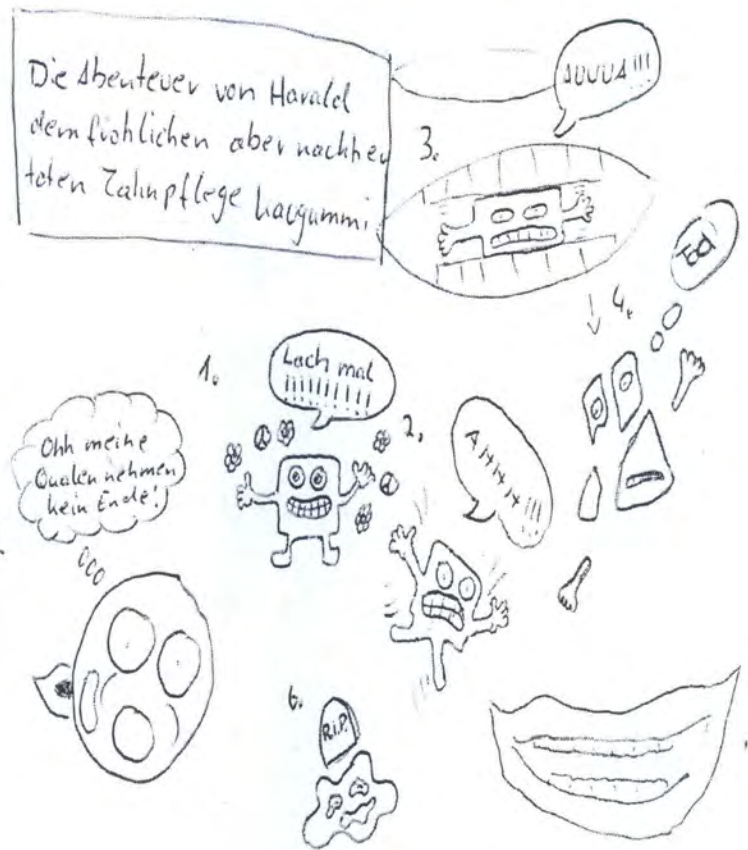 Die Abenteuer von Harald
dem fröhlichen aber nachher
toten Zahnpflege kaugummi
1.
Lach mal
!!!!!!!!!!
2.
AHHH!!!
3.
AUUUA!!!
4.
Tod
Ohh meine
Qualen nehmen
kein Ende!
6.
R.i.P.